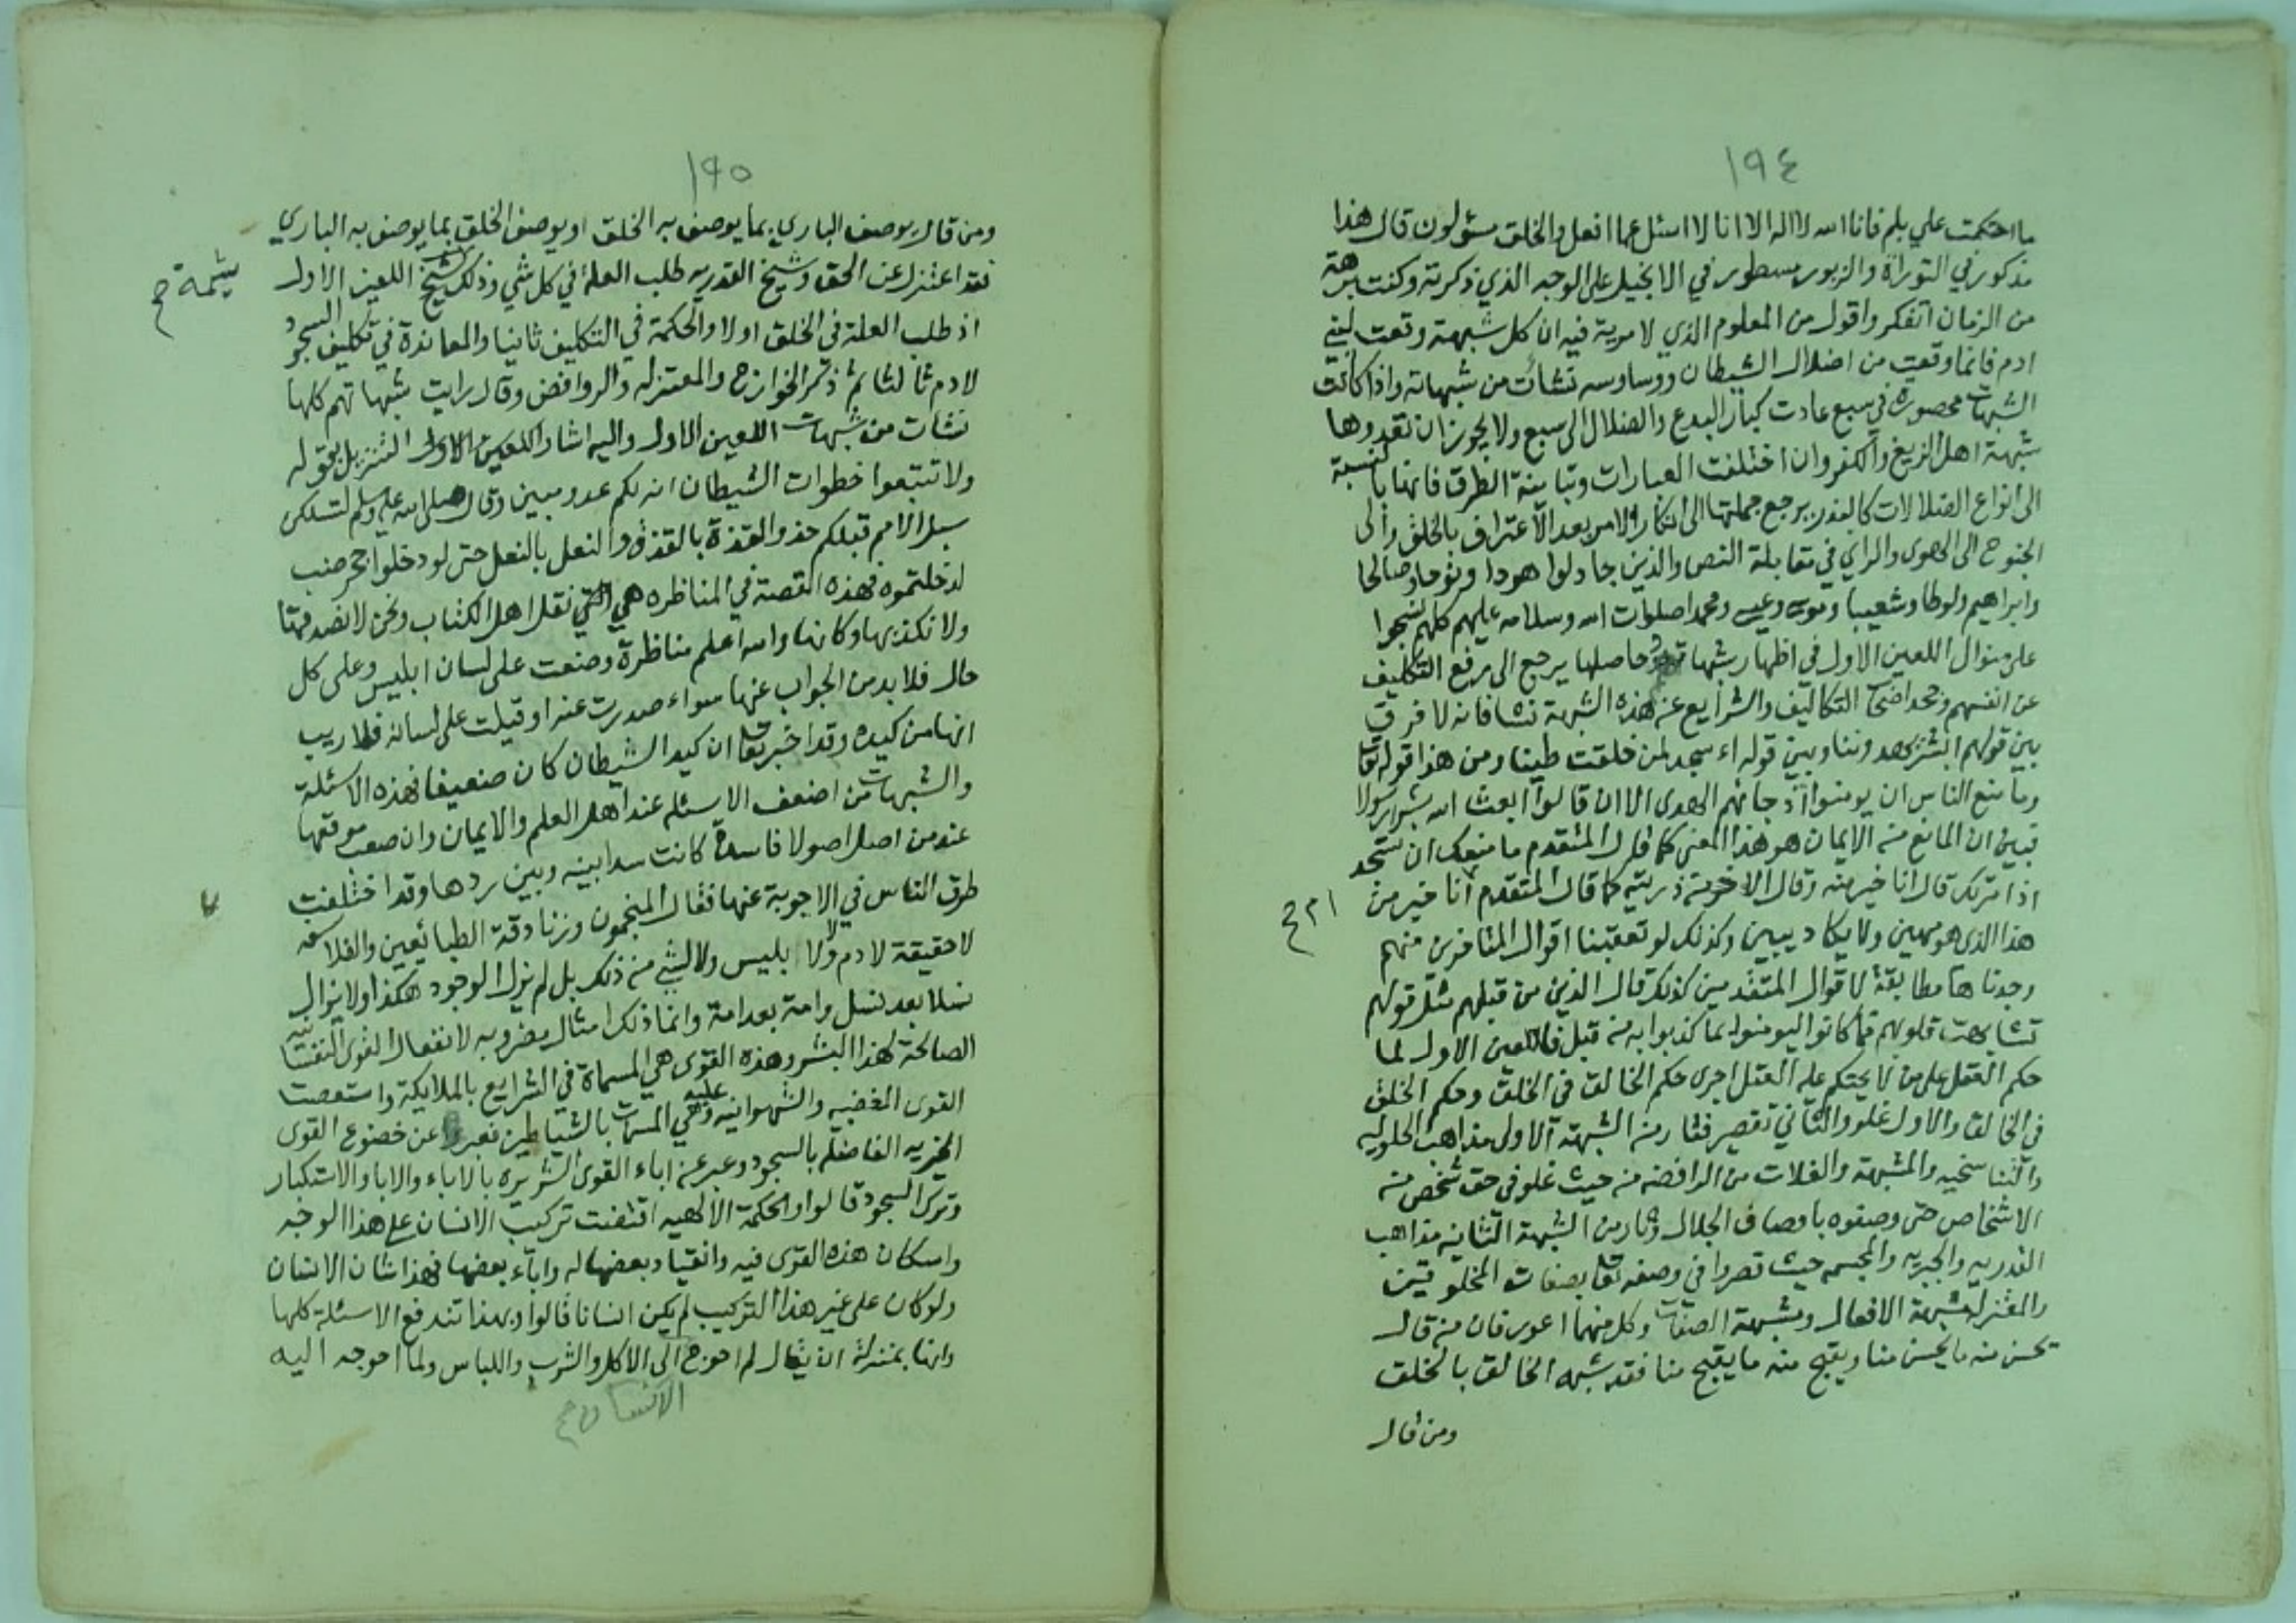 ١٩٤
ما احتكمت علي بلم فانا الله لا اله الا انا لا اسئل عما افعل والخلق مسؤلون قال هذا
مذكور في التوراة والزبور مسطور في الانجيل على الوجه الذي ذكرته وكنت برهة
من الزمان اتفكر واقول من المعلوم الذي لا مرية فيه ان كل شبهة وقعت لبني
ادم فانما وقعت من اضلال الشيطان ووساوسه نشأت من شبهاته واذا كانت
الشبهات محصورة في سبع عادت كبار البدع والضلال الى سبع ولا يجوز ان تعدوها
شبهة اهل الزيغ والكفر وان اختلفت العبارات وتباينة الطرق فانها بالنسبة
الى انواع الضلالات كالبذر يرجع جملتها الى انكار الامر بعد الاعتراف بالخلق والى
الجنوح الى الهوى والراي في مقابلة النص والذين جادلوا هودا ونوحا وصالحا
وابراهيم ولوطا وشعيبا وموسى وعيسى ومحمدا صلوات الله وسلامه عليهم كلهم نسجوا
على منوال اللعين الاول في اظهار شبهاته وحاصلها يرجع الى رفع التكليف
عن انفسهم وجحد اصحاب التكاليف والشرايع عن هذه الشبهة نشا فانه لا فرق
بين قولهم ابشر يهدوننا وبين قوله ء اسجد لمن خلقت طينا ومن هذا قوله تعا
وما منع الناس ان يومنوا اذ جائهم الهدى الا ان قالوا ابعث الله بشرا رسولا
فبين ان المانع من الايمان هو هذا المعنى كما قال المتقدم ما منعك ان تسجد
اذ امرتك قال انا خير منه وقال الاخر من ذريته كما قال المتقدم انا خير من
ام ح
هذا الذي هو مهين ولا يكاد يبين وكذلك لو تعقبنا اقوال المتاخرين منهم
وجدناها مطابقة لاقوال المتقدمين كذلك قال الذين من قبلهم مثل قولهم
تشابهت قلوبهم فما كانوا ليومنوا بما كذبوا به من قبل فاللعين الاول لما
حكم العقل على من لا يحتكم عليه العقل اجرى حكم الخالق في الخلق وحكم الخلق
في الخالق والاول غلو والثاني تقصير فثار من الشبهة الاولى مذاهب الحلوليه
والتناسخيه والمشبهة والغلات من الرافضه من حيث غلو في حق شخص من
الاشخاص حتى وصفوه باوصاف الجلال وثار من الشبهة الثانيه مذاهب
القدريه والجبريه والمجسمه حيث قصروا في وصفه تعا بصفات المخلوقين
والمعتزله مشبهة الافعال ومشبهة الصفات وكل منهما اعور فان من قال
يحسن منه ما يحسن منا ويقبح منه ما يقبح منا فقد شبه الخالق بالخلق
ومن قال
١٩٥
ومن قال يوصف الباري بما يوصف به الخلق او يوصف الخلق بما يوصف به الباري
فقد اعتزل عن الحق وشيخ القدريه طلب العلة في كل شي وذلك شيخ اللعين الاول
شيمة ح
اذ طلب العلة في الخلق اولا والحكمة في التكليف ثانيا والمعاندة في تكليف السجود
لادم ثالثا ثم ذكر الخوارج والمعتزله والروافض وقال رايت شبهاتهم كلها
نشات من شبهات اللعين الاول واليه اشار اللعين الاول التنزيل بقوله
ولا تتبعوا خطوات الشيطان انه لكم عدو مبين وقال صلى الله عليه وسلم لتسلكن
سبل الامم قبلكم حذو القذة بالقذة والنعل بالنعل حتى لو دخلوا جحر ضب
لدخلتموه فهذه القصة في المناظره هي التي نقل اهل الكتاب ونحن لا نصدقها
ولا نكذبها وكانها والله اعلم مناظرة وضعت على لسان ابليس وعلى كل
حال فلا بد من الجواب عنها سواء صدرت عنه او قيلت على لسانه فلا ريب
انها من كيده وقد اخبر تعا ان كيد الشيطان كان ضعيفا فهذه الاسئلة
والشبهات من اضعف الاسئله عند اهل العلم والايمان وان صعب موقعها
عند من اصل اصولا فاسدة كانت سدا بينه وبين ردها وقد اختلفت
طرق الناس في الاجوبة عنها فقال المنجمون وزنادقة الطبائعيين والفلاسفه
لا حقيقة لادم ولا لابليس ولا لشي من ذلك بل لم يزل الوجود هكذا ولا يزال
نسلا بعد نسل وامة بعد امة وانما ذلك امثال مضروبه لانفعال القوى النفسانيه
الصالحة لهذا البشر وهذه القوى هي المسماة في الشرايع بالملايكة واستعصت
القوى الغضبيه والشهوانيه عليه وهي المسمات بالشياطين فعبروا عن خضوع القوى
الخيريه الفاضله بالسجود وعبر عن اباء القوى الشريره بالاباء والاباء والاستكبار
وترك السجود قالوا والحكمة الالهيه اقتضت تركيب الانسان على هذا الوجه
واسكان هذه القوى فيه وانقياد بعضها له واباء بعضها فهذا شان الانسان
ولو كان على غير هذا التركيب لم يكن انسانا قالوا وبهذا تندفع الاسئلة كلها
وانها بمنزلة ان يقال لم احوج الى الاكل والشرب واللباس ولما احوجه اليه
الانسان ح